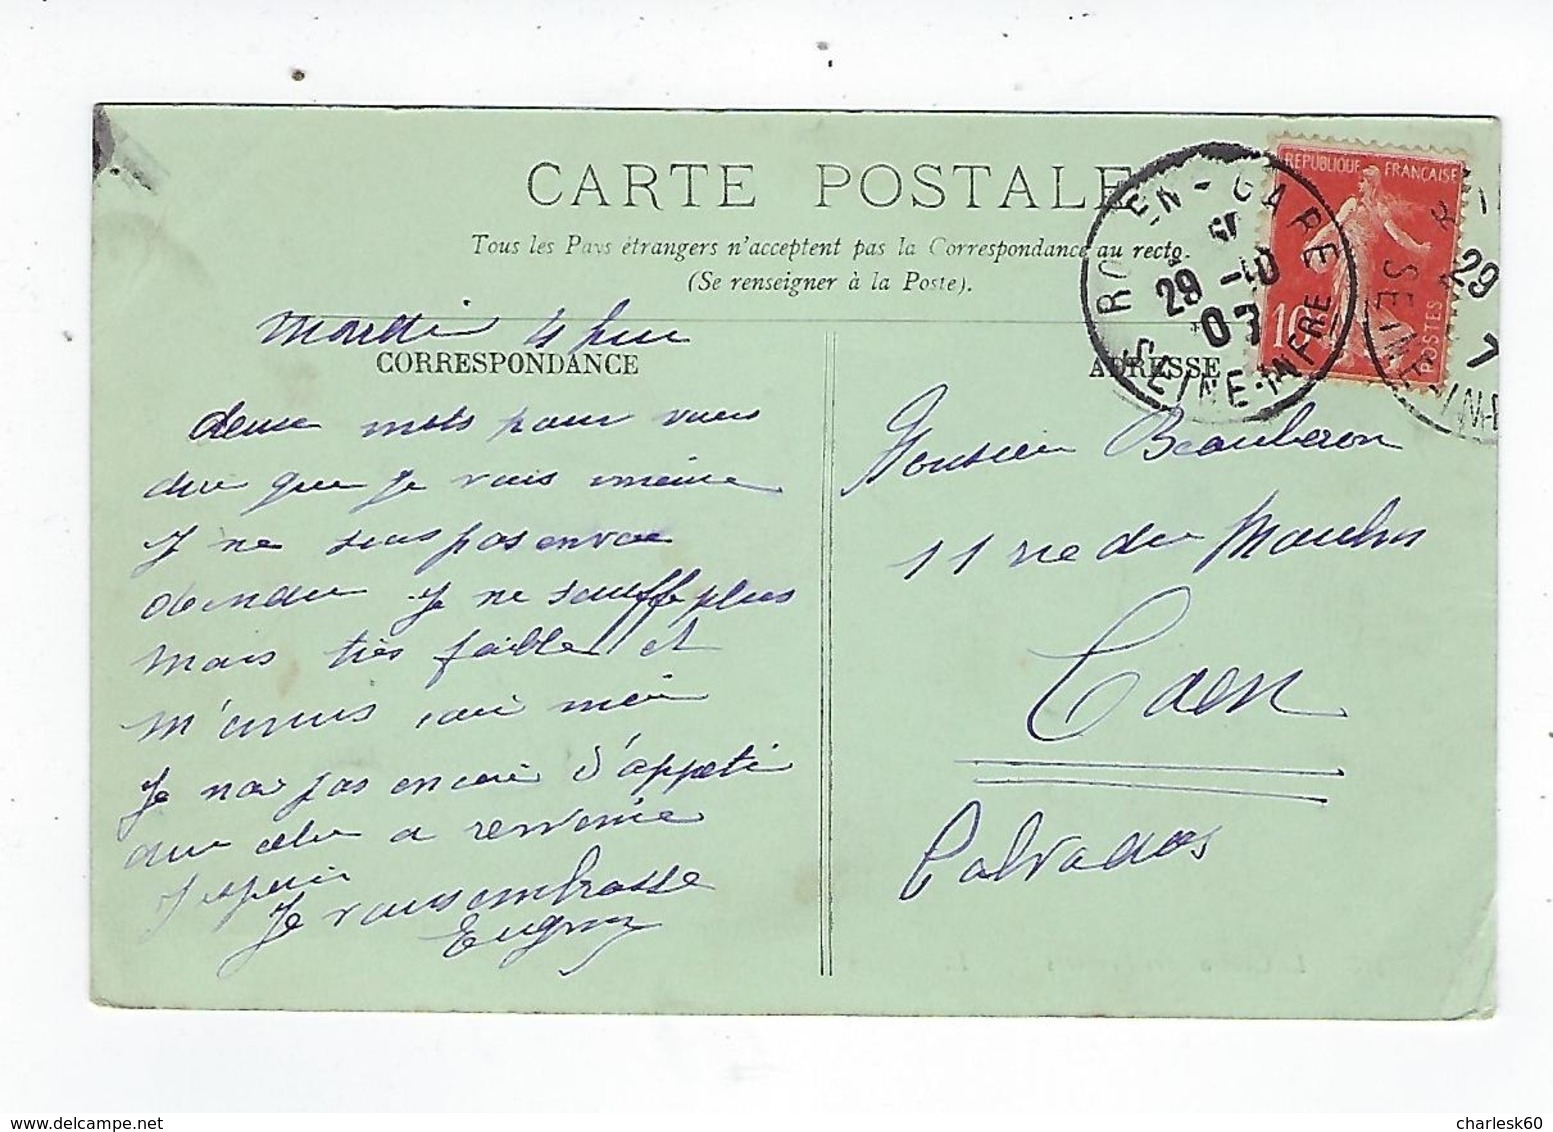 CARTE POSTALE
Tous les Pays étrangers n'acceptent pas la Correspondance au recto.
(Se renseigner à la Poste).
ROUEN-GARE
29-10
07
SEINE-INFRE
REPUBLIQUE FRANÇAISE
10
POSTES
29
7
SEINE-INF
Mardi 4 heu
CORRESPONDANCE
deux mots pour vous
dire que je vais mieux
je ne suis pas encore
je ne souffre plus
mais très faible et
m'ennuis
Je n'ai pas encore d'appéti
que cela a revenir
j'espère
Je vous embrasse
ADRESSE
Monsieur Beauberon
11 rue du Moulin
Caen
Calvados
charlesk60